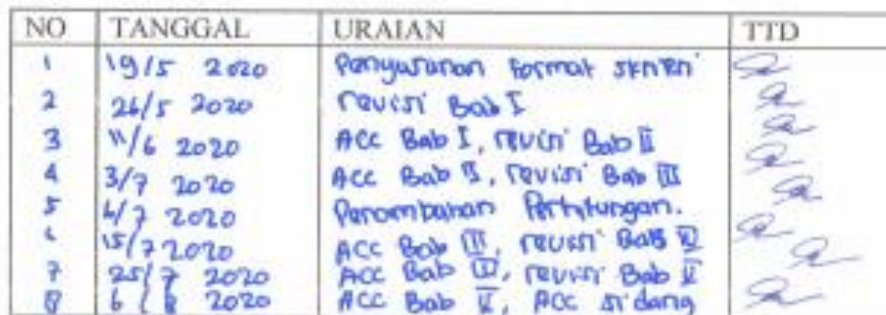 NO TANGGAL URAIAN TTD
1 19/5 2020 Penyusunan Format skripsi
2 26/5 2020 revisi Bab I
3 11/6 2020 ACC Bab I, revisi Bab II
4 3/7 2020 ACC Bab II, revisi Bab III
5 4/7 2020 Penambahan Perhitungan.
6 15/7 2020 ACC Bab III, revisi Bab IV
7 25/7 2020 ACC Bab IV, revisi Bab V
8 6/8 2020 ACC Bab V, ACC sidang